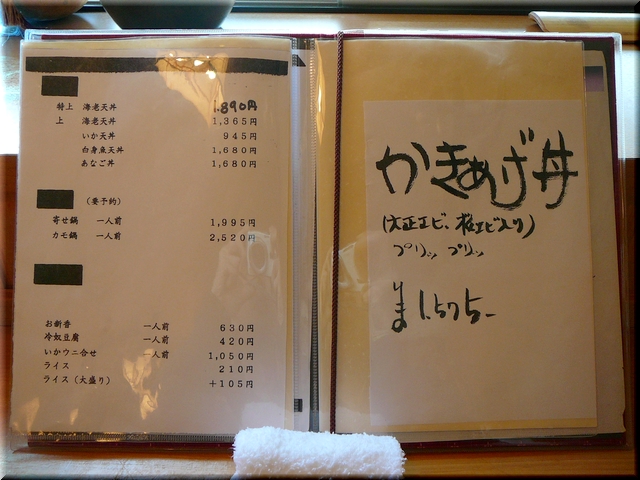 特上 海老天丼 1,890円
上 海老天丼 1,365円
いか天丼 945円
白身魚天丼 1,680円
あなご丼 1,680円
(要予約)
寄せ鍋 一人前 1,995円
カモ鍋 一人前 2,520円
お新香 一人前 630円
冷奴豆腐 一人前 420円
いかウニ合せ 一人前 1,050円
ライス 210円
ライス(大盛り) +105円
かきあげ丼
(大正エビ、桜エビ入り)
プリッ プリッ
1.575-